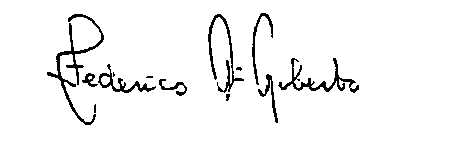 Federico Di Goberto